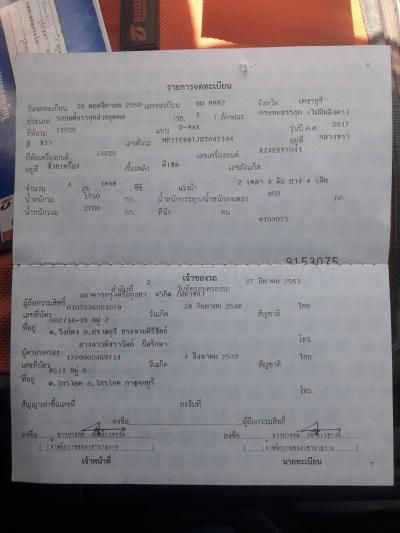 6
รายการจดทะเบียน
วันจดทะเบียน 20 พฤศจิกายน 2560 เลขทะเบียน 8882 จังหวัด เพชรบุรี
ประเภท รถยนต์บรรทุกส่วนบุคคล (รย. 3 ) ลักษณะ กระบะบรรทุก (ไม่มีหลังคา)
ยี่ห้อรถ ISUZU แบบ D-MAX รุ่นปี ค.ศ. 2017
สี ขาว เลขตัวรถ MP1TFR87JHT047334 อยู่ที่ กลางขวา
ยี่ห้อเครื่องยนต์ ISUZU เลขเครื่องยนต์ RZ4ERT7041
อยู่ที่ ซ้ายเครื่อง เชื้อเพลิง ดีเซล เลขถังแก๊ส
จำนวน 4 สูบ 1898 ซีซี แรงม้า 2 เพลา 4 ล้อ ยาง 4 เส้น
น้ำหนักรถ 1750 กก. น้ำหนักบรรทุก/น้ำหนักลงเพลา 950 กก.
น้ำหนักรวม 2700 กก. ที่นั่ง คน
9153075
9153075
เจ้าของรถ
ลำดับที่ 2 วันที่ครอบครองรถ 27 มีนาคม 2563
ผู้ถือกรรมสิทธิ์ ธนาคารกรุงศรีอยุธยา จำกัด (มหาชน)
เลขที่บัตร 0107536001079 วันเกิด 28 กันยายน 2536 สัญชาติ ไทย
ที่อยู่ 502/14-15 หมู่ 2
ต.วังก์พง อ.ปราณบุรี ประจวบคีรีขันธ์ โทร.
ผู้ครอบครอง
เลขที่บัตร 1709900469714 วันเกิด 4 สิงหาคม 2532 สัญชาติ ไทย
ที่อยู่ 85/1 หมู่ 6
ต.ไทรโยค อ.ไทรโยค กาญจนบุรี โทร.
สัญญาเช่าซื้อเลขที่ ลงวันที่
ลงชื่อ ผู้ถือกรรมสิทธิ์
ลงชื่อ ลงชื่อ
เจ้าหน้าที่ นายทะเบียน
7